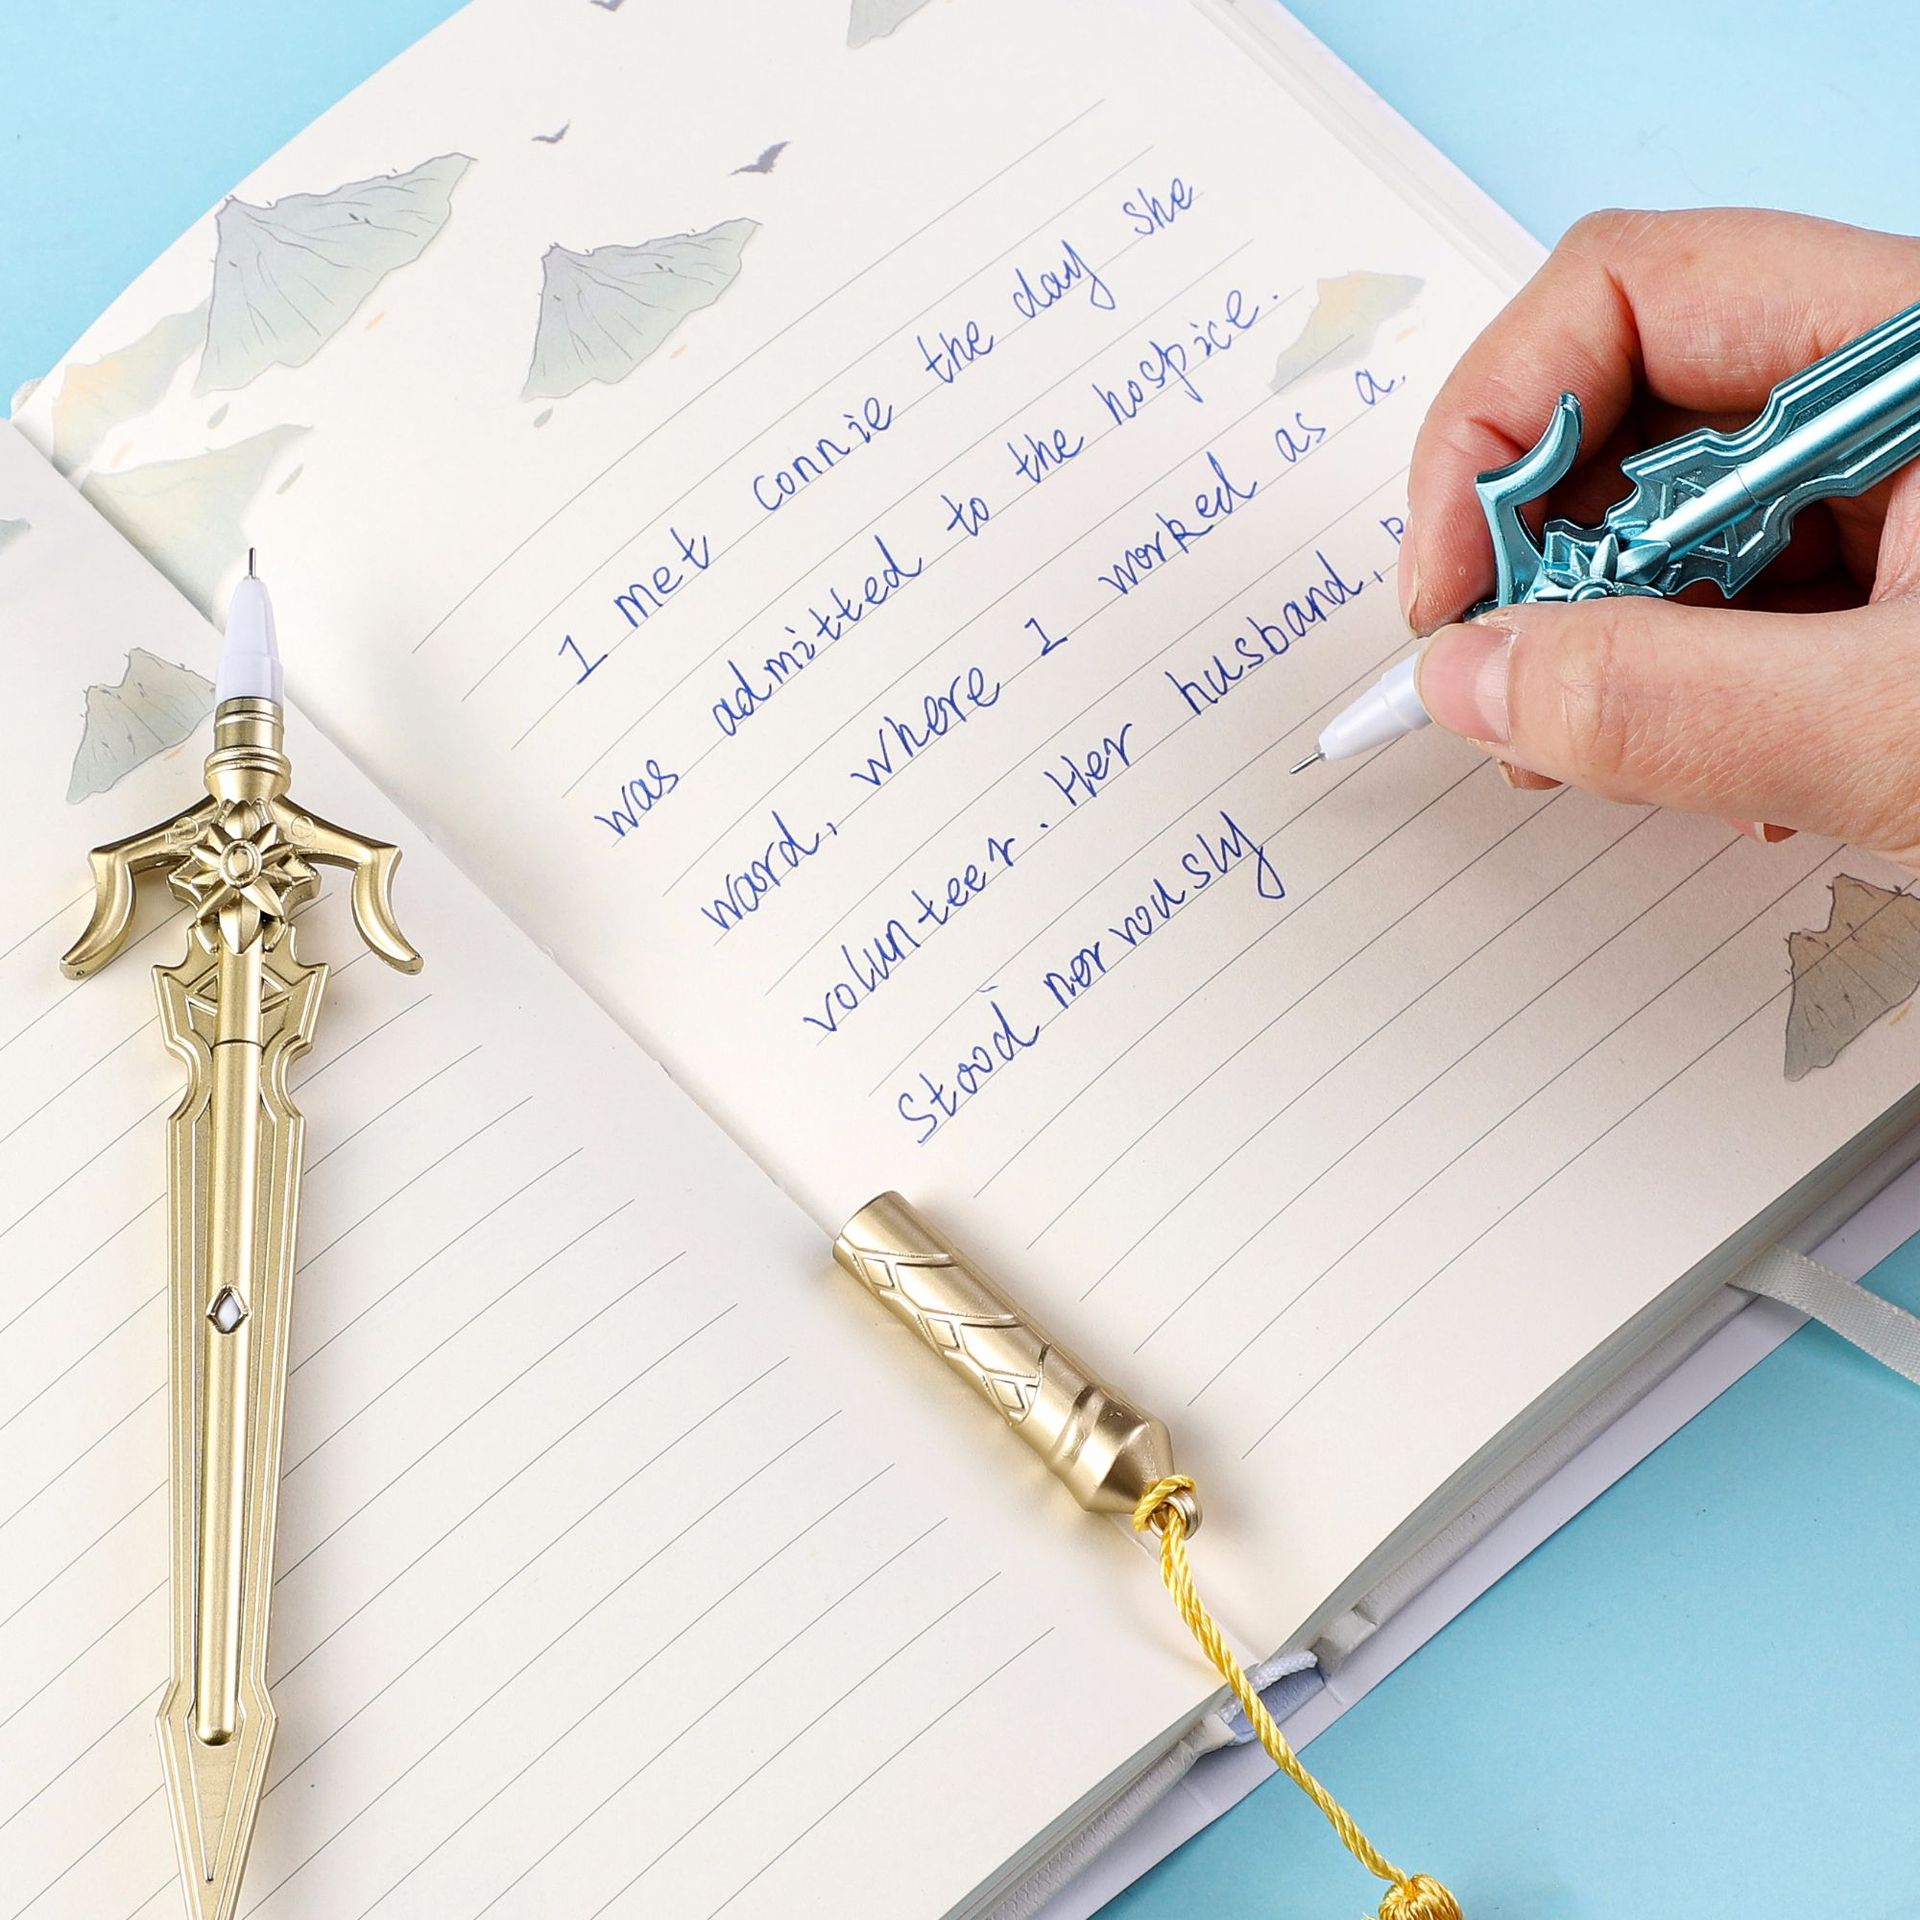 I met connie the day she
was admitted to the hospice.
ward, where I worked as a.
volunteer. Her husband,
Stood nervously